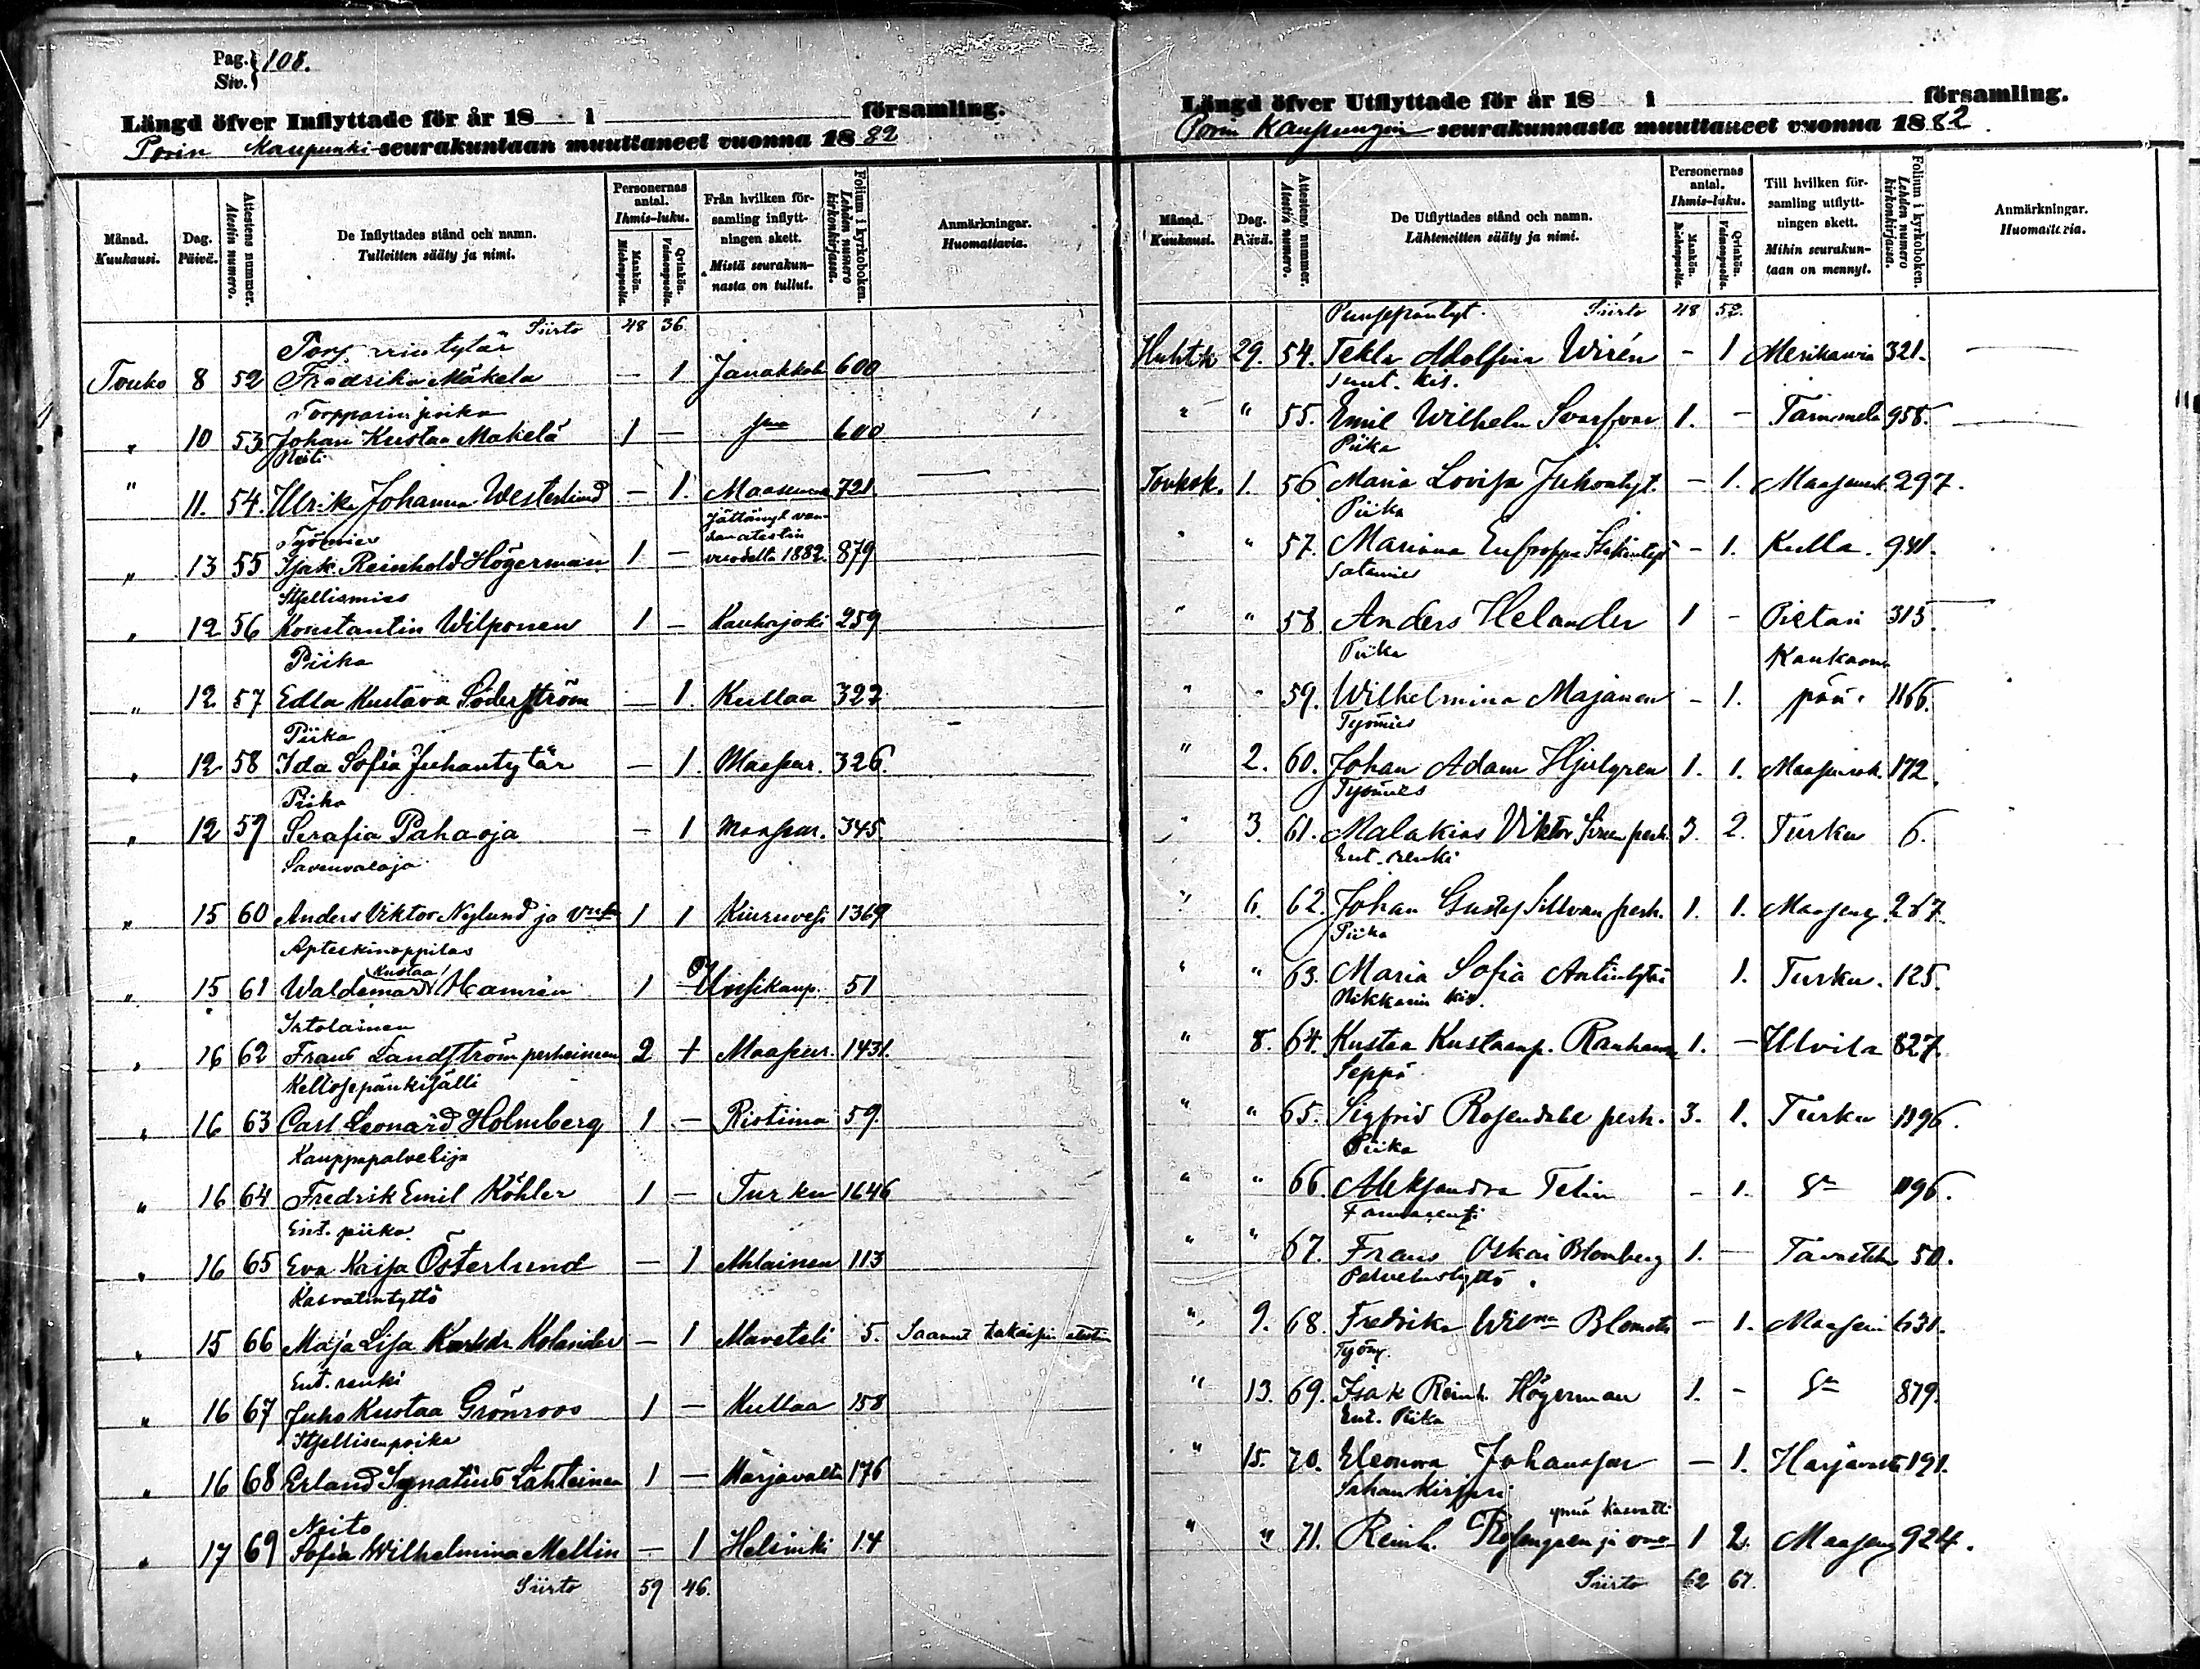 Pag. Siv. } 108.
Längd öfver Inflyttade för år 18 i församling.
Porin Kaupunki seurakuntaan muuttaneet vuonna 1882
Månad. Kuukausi.
Dag. Päivä.
Attestens nummer. Atestin numero.
De Inflyttades stånd och namn. Tulleitten sääty ja nimi.
Personernas antal. Ihmis-luku.
Mankön. Miehenpuolta.
Qvinkön. Vaimonpuolta.
Från hvilken församling inflyttningen skett. Mistä seurakunnasta on tullut.
Folium i kyrkoboken. Lehden numero kirkonkirjassa.
Anmärkningar. Huomattavia.
Siirto 48 36.
Touko 8 52 Fredrika Mäkelä — 1 Janakkala 600
Torpparin poika
" 10 53 Johan Kustaa Mäkelä 1 — 600
Neiti
" 11. 54. Ulrika Johanna Westerlund — 1. Maaseura 721.
Työmies Jättänyt vanhan atestin
" 13 55 Isak Reinhold Högerman 1 — vuodelta 1882. 879
Itsellismies
" 12 56 Konstantin Wilponen 1 — Kauhajoki 259
Piika
" 12 57 Edla Kustava Söderström — 1. Kullaa 322
Piika
" 12 58 Ida Sofia Juhantytär — 1. Maaseur. 326.
Piika
" 12 59 Serafia Pahaoja — 1 Maaseur. 345.
Savenvalaja
" 15 60 Anders Viktor Nylund ja 1 1 Kiuruvesi 1369
Apteekinoppilas
Kustaa
" 15 61 Waldemar Hamrén 1 — Uusikaup. 51
Irtolainen
" 16 62 Frans Landström perheineen 2 + Maaseur. 1431.
Kellosepänkisälli
" 16 63 Carl Leonard Holmberg 1 — Ristiina 59.
Kauppapalvelija
" 16 64 Fredrik Emil Köhler 1 — Turku 1646
Ent. piika
" 16 65 Eva Kaisa Österlund — 1 Ahlainen 113
Kasvatintyttö
" 15 66 Maja Lisa Kolander — 1 5. Saanut takaisin atestin
Ent. renki
" 16 67 Juho Kustaa Grönroos 1 — Kullaa 158
Itsellisenpoika
" 16 68 Erland Ignatius Lähteinen 1 — Harjavalta 176
Neito
" 17 69 Sofia Wilhelmina Mellin — 1 Helsinki 14
Siirto 59 46.
Längd öfver Utflyttade för år 18 i församling.
Porin Kaupungin seurakunnasta muuttaneet vuonna 1882.
Månad. Kuukausi.
Dag. Päivä.
Attestens nummer. Atestin numero.
De Utflyttades stånd och namn. Lähteneitten sääty ja nimi.
Personernas antal. Ihmis-luku.
Mankön. Miehenpuolta.
Qvinkön. Vaimonpuolta.
Till hvilken församling utflyttningen skett. Mihin seurakuntaan on mennyt.
Folium i kyrkoboken. Lehden numero kirkonkirjassa.
Anmärkningar. Huomattavia.
Siirto 48 52.
Huhtk 29. 54. Tekla Adolfina Wirén — 1 Merikarvia 321.
" " 55. Emil Wilhelm Svarfvar 1. — Tammela 958.
Piika
Toukok. 1. 56. Maria Lovisa Juhontyt. — 1. Maaseurak. 297.
Piika
" " 57. Mariana — 1. Kulla. 941.
Satamies
" " 58. Anders Helander 1 — Pietari 315.
Piika Kankaan
" " 59. Wilhelmina Majanen — 1. pää. 1166.
Työmies
" 2. 60. Johan Adam Hjulgren 1. 1. Maaseurak. 172.
Työmies
" 3. 61. Malakias Viktor perh. 3. 2. Turku 6.
Ent. renki
" 6. 62. Johan Gustaf Sillvan perh. 1. 1. Maaseur. 267.
Piika
" " 63. Maria Sofia Antintytär 1. Turku. 125.
Nikkarin kis.
" 8. 64. Kustaa Kustaanp. Rauhanen 1. — Ulvila 827.
Seppä
" " 65. Sigfrid Rosendahl perh. 3. 1. Turku 1196.
Piika
" " 66. Aleksandra Telin — 1. 1196.
" " 67. Frans Oskar Blomberg 1. — 50.
Palvelustyttö
" 9. 68. Fredrika — 1. Maaseur 631.
Työm.
" 13. 69. Isak Reinh. Högerman 1. — 879.
Ent. Piika
" 15. 70. Eleonora Johansson — 1. Harjavalta 191.
Sahan Kirjuri ynnä kasvatti
" " 71. Reinh. Rosengren ja vmo 1 2. Maaseur 924.
Siirto 62 67.